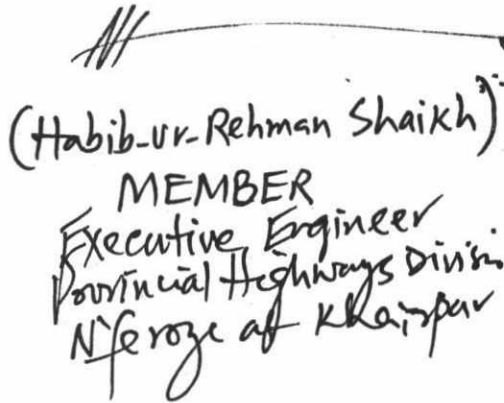 (Habib-ur-Rehman Shaikh)
MEMBER
Executive Engineer
Provincial Highways Divisi
N'feroze at Khairpur